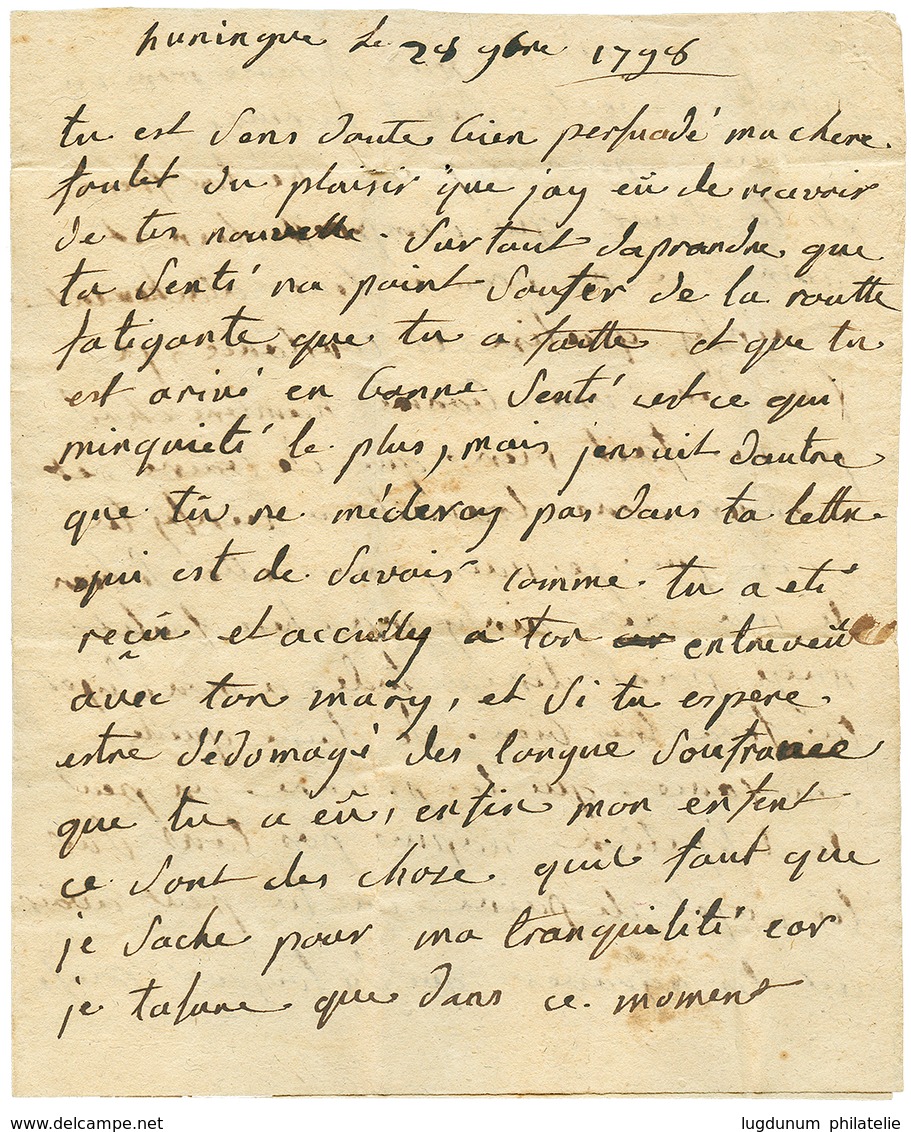 huningue le 28 9bre 1798
tu est sens doute bien persuadé ma chere
du plaisir que jay eü de recevoir
de tes nouvelle. surtout daprandre que
ta senti na point soufer de la routte
fatigante que tu a faitte et que tu
est arivé en bonne senté cest ce qui
minquieté le plus, mais jen ait dautre
que tu ne pas dans ta lettre
qui est de savoir comme tu a eté
reçu et accuilly a ton entreveü
avec ton mary, et si tu espere
estre dédomagé des longue soufrance
que tu a eü, enfin mon enfent
ce sont des chose quil faut que
je sache pour ma tranquilité car
je tasure que dans ce moment
www.delcampe.net
lugdunum philatelie